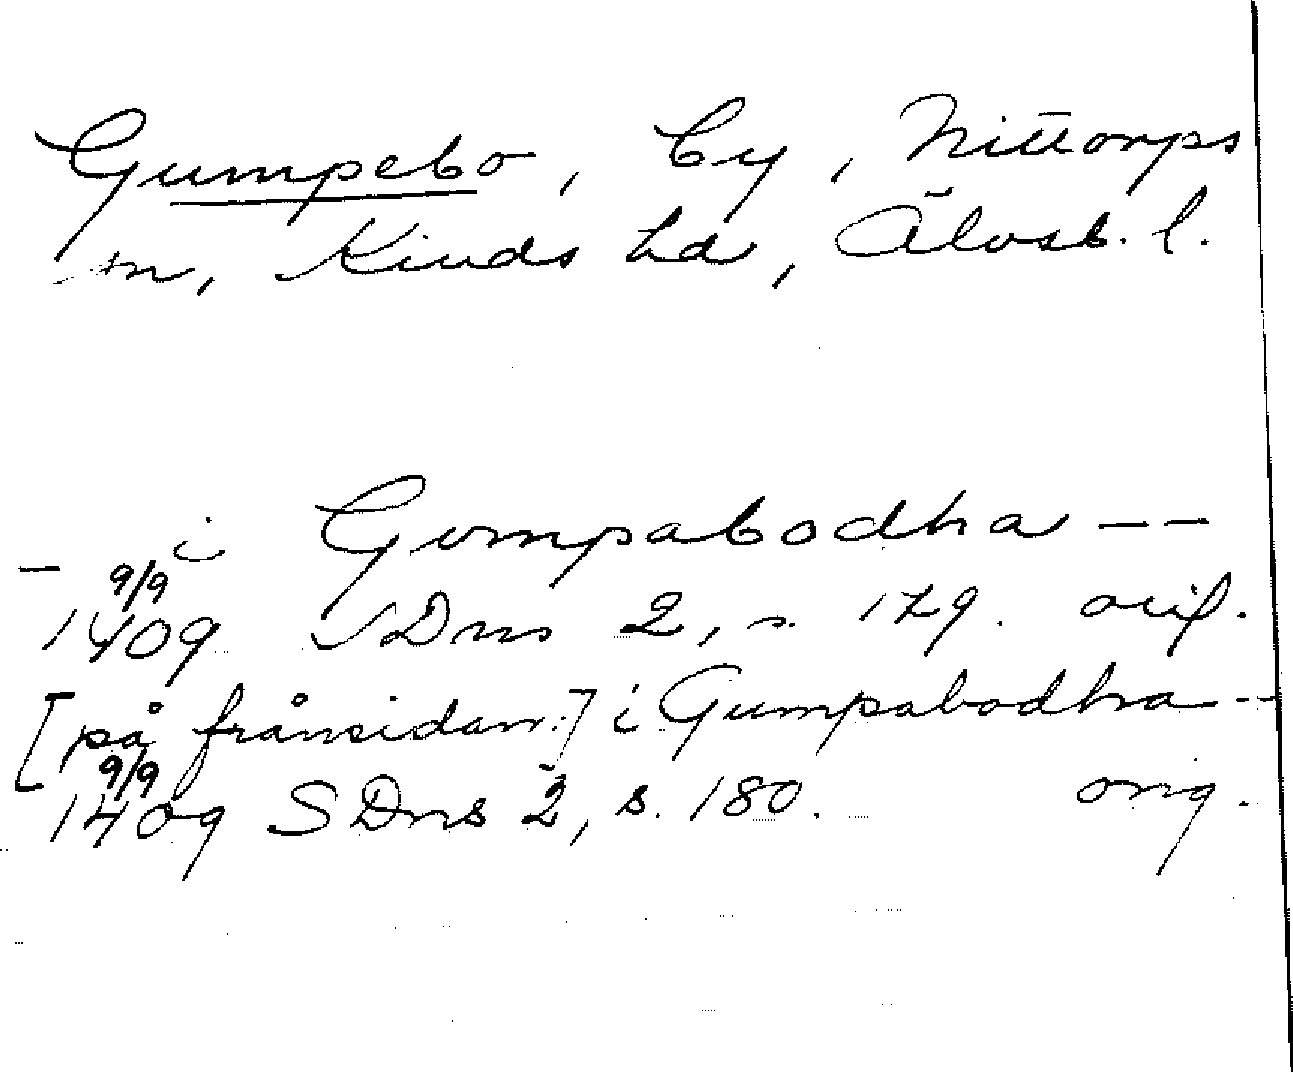 Gumpebo, by, Nittorps
sn, Kinds hd, Älvsb. l.
– i Gompabodha – –
9/9
1409 SDns 2, s. 179. orig.
[på frånsidan:] i Gumpabodha – –
9/9
1409 SDns 2, s. 180. orig.